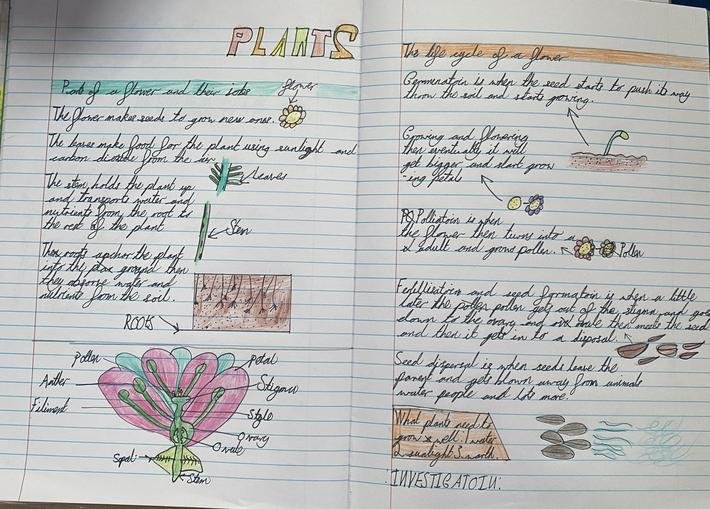 PLANTS
Parts of a flower and their jobs
flower
The flower makes seeds to grow new ones.
The leaves make food for the plant using sunlight and
carbon dioxide from the air
leaves
The stem holds the plant up
and transports water and
nutrients from the root to
the rest of the plant
Stem
The roots anchor the plant
into the ground then
they absorve water and
nutrients from the soil.
ROOTS
Pollen
Petal
Anther
Stigma
Filiment
Style
Ovary
Ovule
Sepal
Stem
The life cycle of a flower
Germenatoin is when the seed starts to push its way
throw the soil and starts growing.
Growing and flowering
then eventually it will
get bigger and start grow
-ing petals
Pollinatoin is when
the flower then turns into a
adult and grows pollen.
Pollen
and seed formatoin is when a little
later the pollen pollen gets out of the stigma and goes
down to the ovary and ovule then meets the seed
and then it get in to a disposal.
Seed dispersal is when seeds leave the
parent and gets blown away from animals
water people and lots more.
What plants need to
grow well. 1 water
2 sunlight 3
INVESTIGATOIN: